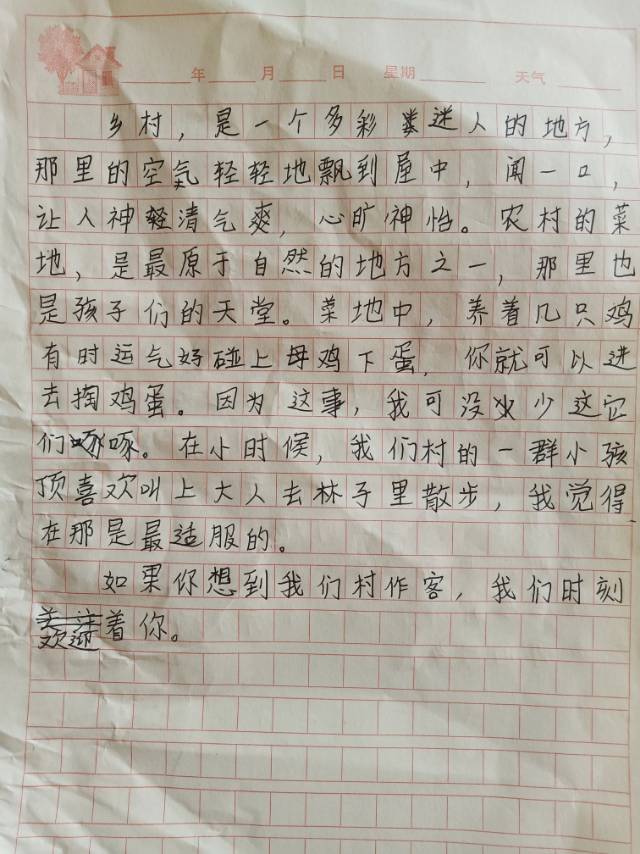 年 月 日 星期 天气
乡村，是一个多彩迷人的地方，
那里的空气轻轻地飘到屋中，闻一口，
让人神清气爽，心旷神怡。农村的菜
地，是最原于自然的地方之一，那里也
是孩子们的天堂。菜地中，养着几只鸡
有时运气好碰上母鸡下蛋，你就可以进
去掏鸡蛋。因为这事，我可没少这它
们啄啄。在小时候，我们村的一群小孩
顶喜欢叫上大人去林子里散步，我觉得
在那是最适服的。
如果你想到我们村作客，我们时刻
欢迎着你。